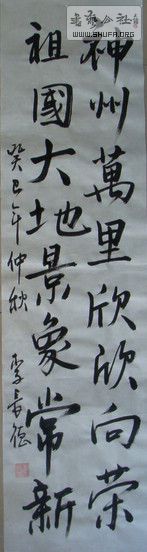 神州萬里欣欣向荣
祖國大地景象常新
癸巳年仲秋
李长德
書藝公社
WWW.SHUFA.ORG